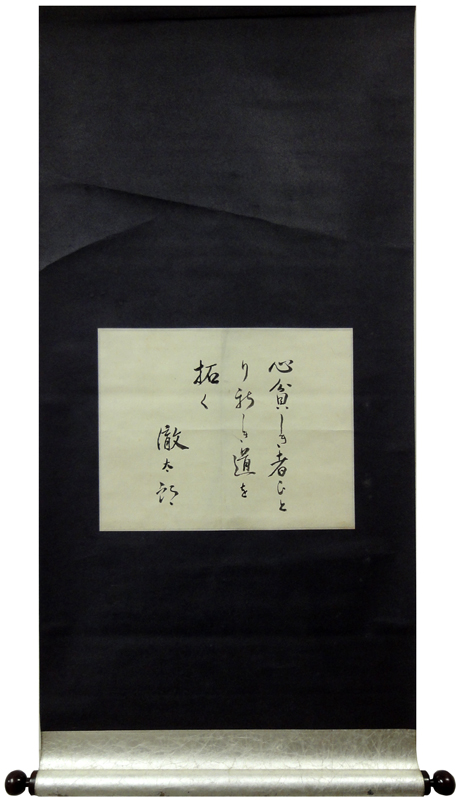 心貧しき者ひと
り新しき道を
拓く
徹太郎